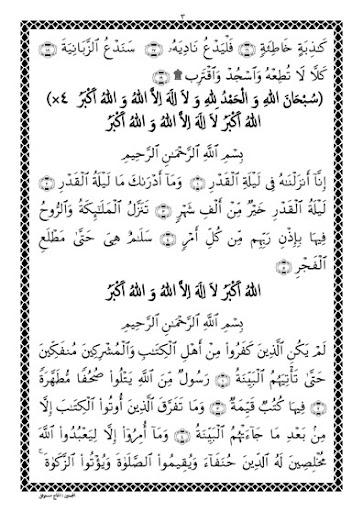 ٣
كَـٰذِبَةٍ خَاطِئَةٍ ۝١٦ فَلْيَدْعُ نَادِيَهُۥ ۝١٧ سَنَدْعُ ٱلزَّبَانِيَةَ ۝١٨
كَلَّا لَا تُطِعْهُ وَٱسْجُدْ وَٱقْتَرِب ۩ ۝١٩
(سُبْحَانَ اللهِ وَ الْحَمْدُ لِلهِ وَ لَا اِلٰهَ اِلاَّ اللهُ وَ اللهُ اَكْبَرُ ×٤)
اللهُ اَكْبَرُ لَا اِلٰهَ اِلاَّ اللهُ وَ اللهُ اَكْبَرُ
بِسْمِ ٱللَّهِ ٱلرَّحْمَـٰنِ ٱلرَّحِيمِ
إِنَّآ أَنزَلْنَـٰهُ فِى لَيْلَةِ ٱلْقَدْرِ ۝١ وَمَآ أَدْرَىٰكَ مَا لَيْلَةُ ٱلْقَدْرِ ۝٢
لَيْلَةُ ٱلْقَدْرِ خَيْرٌ مِّنْ أَلْفِ شَهْرٍ ۝٣ تَنَزَّلُ ٱلْمَلَـٰٓئِكَةُ وَٱلرُّوحُ
فِيهَا بِإِذْنِ رَبِّهِم مِّن كُلِّ أَمْرٍ ۝٤ سَلَـٰمٌ هِىَ حَتَّىٰ مَطْلَعِ
ٱلْفَجْرِ ۝٥
اللهُ اَكْبَرُ لَا اِلٰهَ اِلاَّ اللهُ وَ اللهُ اَكْبَرُ
بِسْمِ ٱللَّهِ ٱلرَّحْمَـٰنِ ٱلرَّحِيمِ
لَمْ يَكُنِ ٱلَّذِينَ كَفَرُوا۟ مِنْ أَهْلِ ٱلْكِتَـٰبِ وَٱلْمُشْرِكِينَ مُنفَكِّينَ
حَتَّىٰ تَأْتِيَهُمُ ٱلْبَيِّنَةُ ۝١ رَسُولٌ مِّنَ ٱللَّهِ يَتْلُوا۟ صُحُفًا مُّطَهَّرَةً
۝٢ فِيهَا كُتُبٌ قَيِّمَةٌ ۝٣ وَمَا تَفَرَّقَ ٱلَّذِينَ أُوتُوا۟ ٱلْكِتَـٰبَ إِلَّا
مِنۢ بَعْدِ مَا جَآءَتْهُمُ ٱلْبَيِّنَةُ ۝٤ وَمَآ أُمِرُوٓا۟ إِلَّا لِيَعْبُدُوا۟ ٱللَّهَ
مُخْلِصِينَ لَهُ ٱلدِّينَ حُنَفَآءَ وَيُقِيمُوا۟ ٱلصَّلَوٰةَ وَيُؤْتُوا۟ ٱلزَّكَوٰةَ ۚ